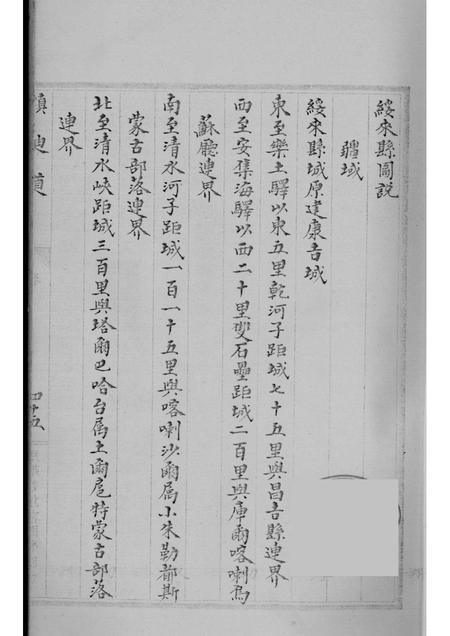 綏來縣圖説
疆域
綏來縣城原建康吉城
東至樂土驛以東五里乾河子距城七十五里與昌吉縣連界
西至安集海驛以西二十里雙石壘距城二百里與庫爾喀喇烏
蘇廳連界
南至清水河子距城一百一十五里與喀喇沙爾属小朱勒都斯
蒙古部落連界
北至清水峽距城三百里與塔爾巴哈台属土爾扈特蒙古部落
連界
鎮迪道
四十五